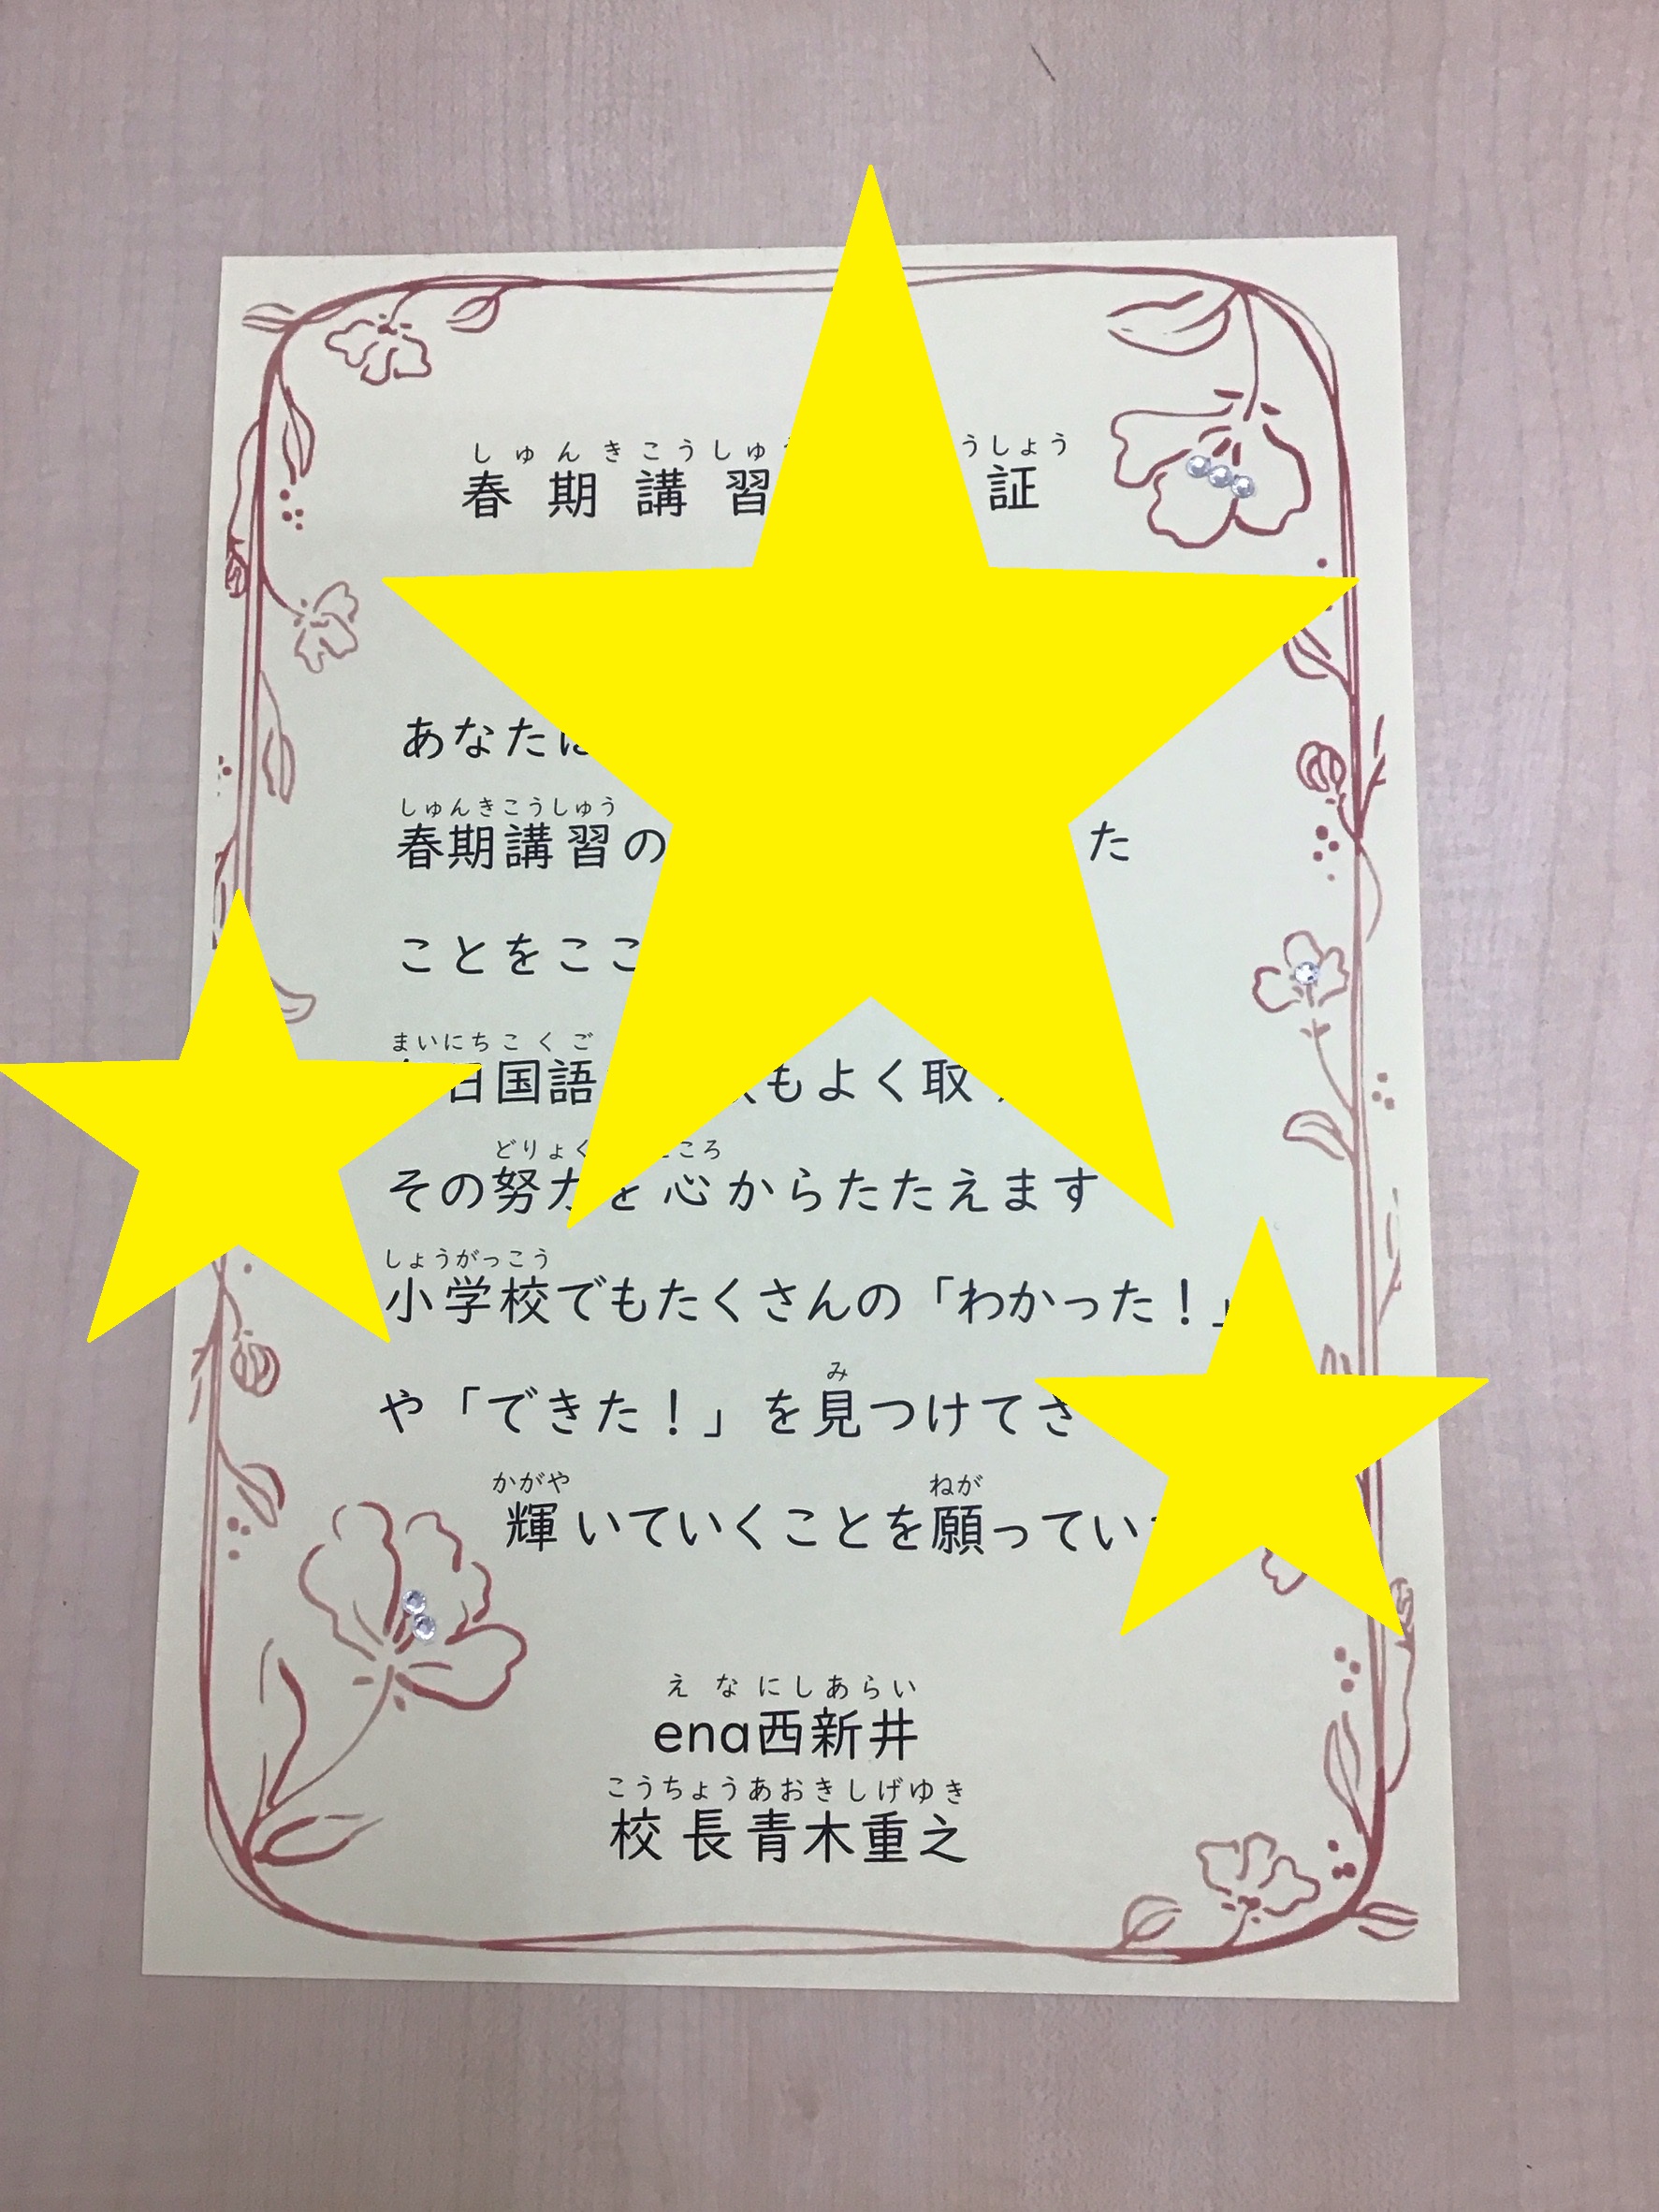 しゅんきこうしゅ うしょう
春期講習 証
あなたは
しゅんきこうしゅう
春期講習の た
ことをここ
まいにちこくご
日国語 もよく取
どりょく ころ
その努力を心からたたえます
しょうがっこう
小学校でもたくさんの「わかった！」
み
や「できた！」を見つけてさ
かがや ねが
輝いていくことを願ってい
えなにしあらい
ena西新井
こうちょうあおきしげゆき
校長青木重之